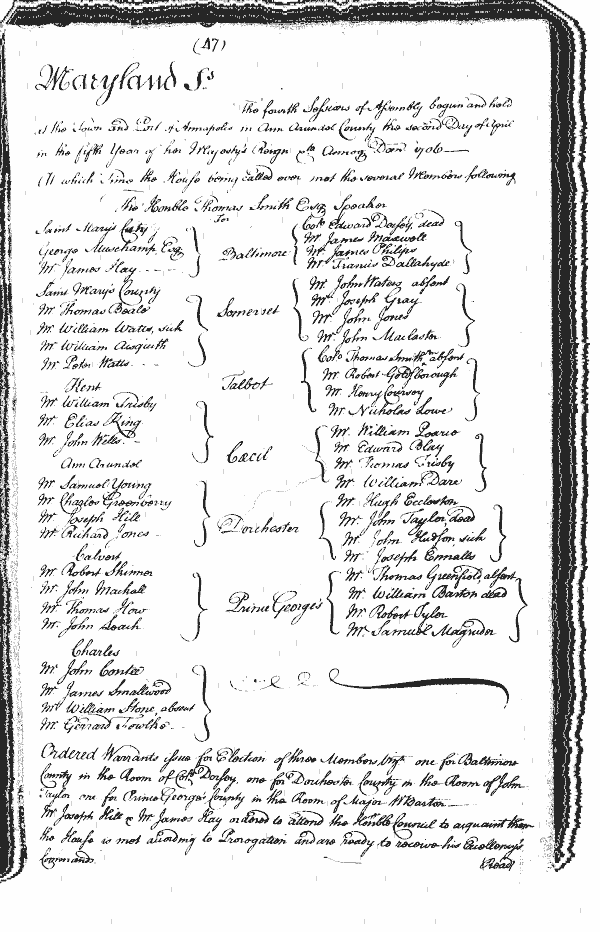 (47)
Maryland Ss
The fourth Sessions of Assembly begun and held
at the Town and Port of Annapolis in Ann Arundel County the second Day of April
in the fifth Year of her Majesty's Reign &ca Annoq Dom 1706
At which Time the House being called over met the several Members following
The Honble Thomas Smith Esqr Speaker
For
Saint Mary's City
George Muschamp Esq
Mr James Hay
Saint Mary's County
Mr Thomas Beale
Mr William Watts, sick
Mr William Aisquith
Mr Peter Watts
Kent
Mr William Frisby
Mr Elias King
Mr John Wells
Ann Arundel
Mr Samuel Young
Mr Charles Greenberry
Mr Joseph Hill
Mr Richard Jones
Calvert
Mr Robert Skinner
Mr John Mackall
Mr Thomas How
Mr John Leach
Charles
Mr John Contee
Mr James Smallwood
Mr William Stone, absent
Mr Gerrard Fowlke
Baltimore
Collo Edward Dorsey, dead
Mr James Maxwell
Mr James Philips
Mr Francis Dallahyde
Somerset
Mr John Waters absent
Mr Joseph Gray
Mr John Jones
Mr John Maclaster
Talbot
Collo Thomas Smith absent
Mr Robert Goldsborough
Mr Henry Coursey
Mr Nicholas Lowe
Cæcil
Mr William Pearce
Mr Edward Blay
Mr Thomas Frisby
Mr William Dare
Dorchester
Mr Hugh Eccleston
Mr John Taylor, dead
Mr John Hudson, sick
Mr Joseph Ennalls
Prince George's
Mr Thomas Greenfield, absent
Mr William Barton dead
Mr Robert Tyler
Mr Samuel Magruder
Ordered Warrants issue for Election of three Members Vizt one for Baltimore
County in the Room of Collo Dorsey, one for Dorchester County in the Room of John
Taylor one for Prince George's County in the Room of Major W Barton
Mr Joseph Hill & Mr James Hay ordered to attend the Honble Council to acquaint them
the House is met according to Prorogation and are ready to receive his Excellency's
Commands.
Read